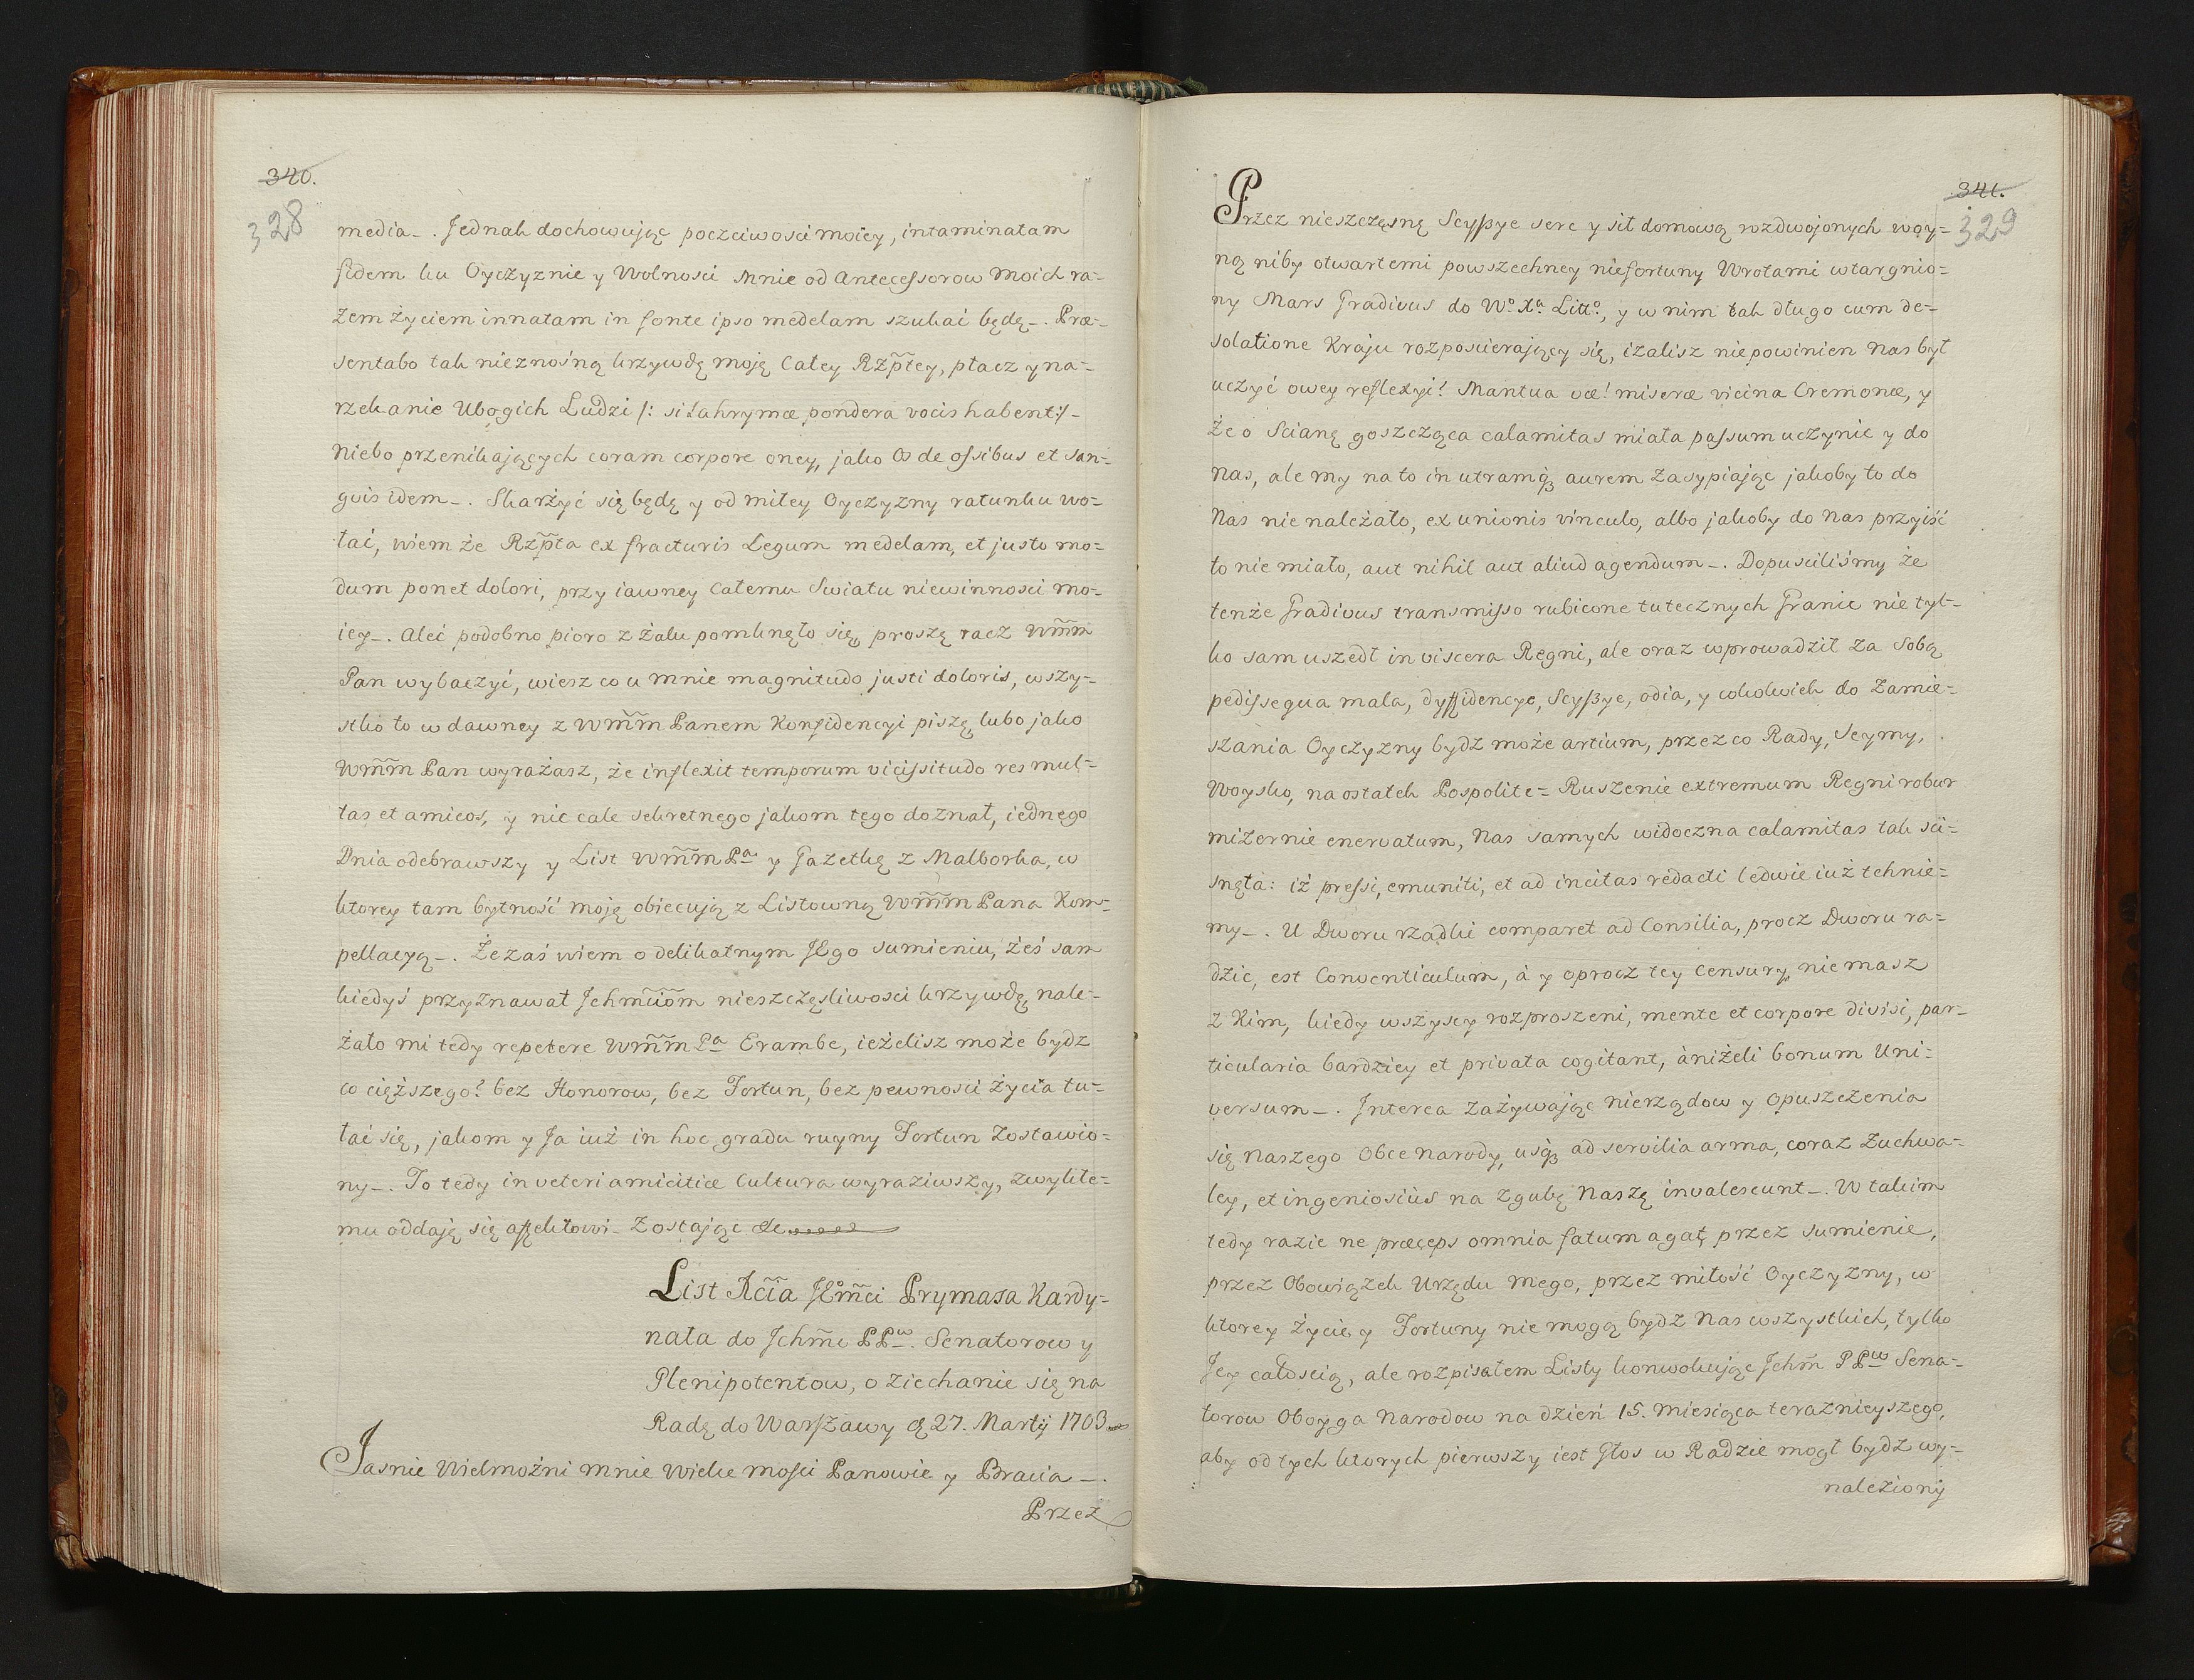 340.
328
media_. Jednak dochowując poczciwosci moiey, intaminatam
fidem ku Oyczyznie y Wolnosci mnie od Antecessorow moich ra-
zem życiem innatam in fonte ipso medelam szukać będę_. Præ-
sentabo tak nieznośną krzywdę moję Całey Rzp̃tey, płacz y na-
rzekanie Ubogich Ludzi /: si lahrymæ pondera vocis habent:/-
Niebo przenikających coram corpore oney, jako Os de ossibus et san-
guis idem_. Skarżyć się będę y od miłey Oyczyzny ratunku wo-
łać, wiem że Rzp̃ta ex fracturis Legum medelam, et justo mo-
dum ponet dolori, przy iawney Całemu Swiatu niewinnosci mo-
iey_. Aleć podobno pioro z żalu pomknęło się, proszę racz Wm̃m
Pan wybaczyć, wiesz co u mnie magnitudo justi doloris, wszy-
stko to w dawney z Wm̃m Panem Konfidencyi piszę, lubo jako
Wm̃m Pan wyrażasz, że inflexit temporum vicissitudo res mul-
tas et amicos, y nic cale sekretnego jakom tego doznał, iednego
Dnia odebrawszy y List Wm̃m Pa y Gazetkę z Malborka, w
ktorey tam bytność moję obiecują z Listowną Wm̃m Pana Kom-
pellacyą_. Że zaś wiem o delikatnym JEgo sumieniu, żeś sam
kiedyś przyznawał Jchmc̃iom nieszczęsliwosci krzywdę, nale-
żało mi tedy repetere Wm̃m Pa Erambe, ieżelisz może bydz
co cięższego? bez Honorow, bez Fortun, bez pewnosci życia tu-
łać się, jakom y Ja iuż in hoc gradu ruyny Fortun zostawio-
ny_. To tedy in veteri amicitiæ Cultura wyraziwszy, zwykłe-
mu oddaję się affektowi- zostając &c
List Xc̃ia JEom̃ci Prymasa Kardy-
nała do Jchm̃c PPw. Senatorow y
Plenipotentow, o ziechanie się na
Radę do Warszawy d 27. Martij 1703
Jasnie Wielmożni mnie Wielce mosci Panowie y Bracia_.
Przez
341.
329
Przez nieszczęsnę Scyssye serc y sił domową rozdwojonych woy-
ną niby otwartemi powszechney niefortuny Wrotami wtargnio-
ny Mars Gradivus do Wo. Xa. Litto, y w nim tak długo cum de-
solatione Kraju rozposcierający się, izalisz niepowinien nas był
uczyć owey reflexyi? Mantua væ! miseræ vicina Cremonæ, y
że o Scianę goszcząca calamitas miała passum uczynic y do
Nas, ale my na to in utramq aurem zasypiając jakoby to do
Nas nie należało, ex unionis vinculo, albo jakoby do nas przyiść
to nie miało, aut nihil aut aliud agendum_. Dopusciliśmy że
tenże Gradivus transmisso rubicone tutecznych Granic nie tyl-
ko sam uszedł in viscera Regni, ale oraz wprowadził za Sobą
pedissequa mala, dyffidencye, Scyssye, odia, y cokolwiek do zamie-
szania Oyczyzny bydz może artium, przez co Rady, Seymy,
Woysko, na ostatek Pospolite- Ruszenie extremum Regni robur
mizernie enervatum, Nas samych widoczna calamitas tak sci-
snęła: iż pressi, emuniti, et ad incitas redacti ledwie iuż tchnie-
my_. U Dworu rzadki comparet ad Consilia, procz Dworu ra-
dzic, est Conventiculum, à y oprocz tey Censury, nie masz
z Kim, kiedy wszyscy rozproszeni, mente et corpore divisi, par-
ticularia bardziey et privata cogitant, àniżeli bonum Uni-
versum_. Interea zażywając nierządow y opuszczenia
się Naszego Obce narody, usq ad servilia arma, coraz zuchwa-
ley, et ingeniosiùs na Zgubę Naszę invalescunt_. W takim
tedy razie ne præceps omnia fatum agat, przez sumienie,
przez Obowiązek Urzędu mego, przez miłość Oyczyzny, w
ktorey życie y Fortuny nie mogą bydz Nas wszystkich, tylko
Jey całoscią, ale rozpisałem Listy konwokując Jchm̃ PPw Sena-
torow Oboyga Narodow na dzień 15. miesiąca teraznieyszego,
aby od tych ktorych pierwszy iest Głos w Radzie mogł bydz wy-
naleziony